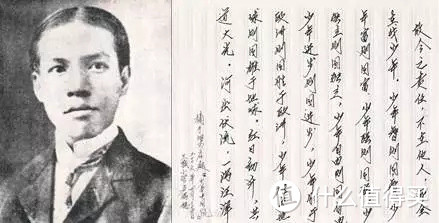 故今之责任,不在他人,而全
在我少年。少年智则国智,少
年富则国富,少年强则国强,
独立则国独立,少年自由则国
少年进步则国进步,少年
欧洲则国胜于欧洲,少年雄于地
球则国雄于地球。红日初升,其
道大光。河出伏流,一泻汪洋
值 什么值得买